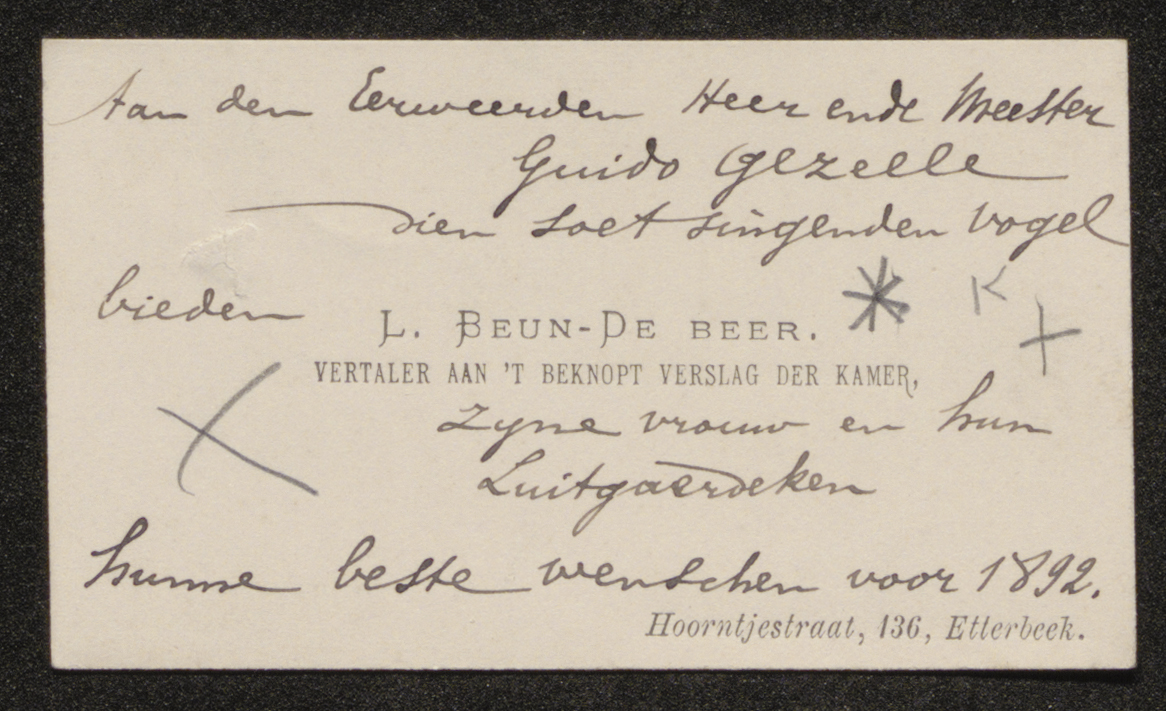 Aan den Eerweerden Heer ende Meester
Guido Gezelle
dien soet singenden vogel
bieden
L. BEUN-DE BEER.
VERTALER AAN 'T BEKNOPT VERSLAG DER KAMER,
zyne vrouw en hun
Luitgaerdeken
hunne beste wenschen voor 1892.
Hoorntjestraat, 136, Etterbeek.